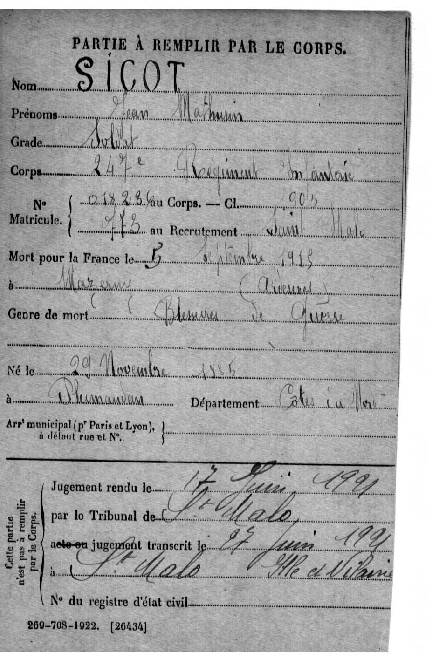 PARTIE À REMPLIR PAR LE CORPS.
Nom SICOT
Prénoms Jean Mathurin
Grade Soldat
Corps 247e Régiment Infanterie
N° Matricule. { au Corps. — Cl. 1905
773 au Recrutement Saint Malo
Mort pour la France le 5 Septembre
à (Ardennes)
Genre de mort Blessures de Guerre
Né le 29 Novembre
à Département Côtes du Nord
Arrt municipal (pr Paris et Lyon), à défaut rue et N°. {
Cette partie n'est pas à remplir par le Corps.
Jugement rendu le 17 Juin 1921
par le Tribunal de St Malo,
acte ou jugement transcrit le 27 juin 1921
à St Malo Ille et Vilaine
N° du registre d'état civil
269-708-1922. [26434]